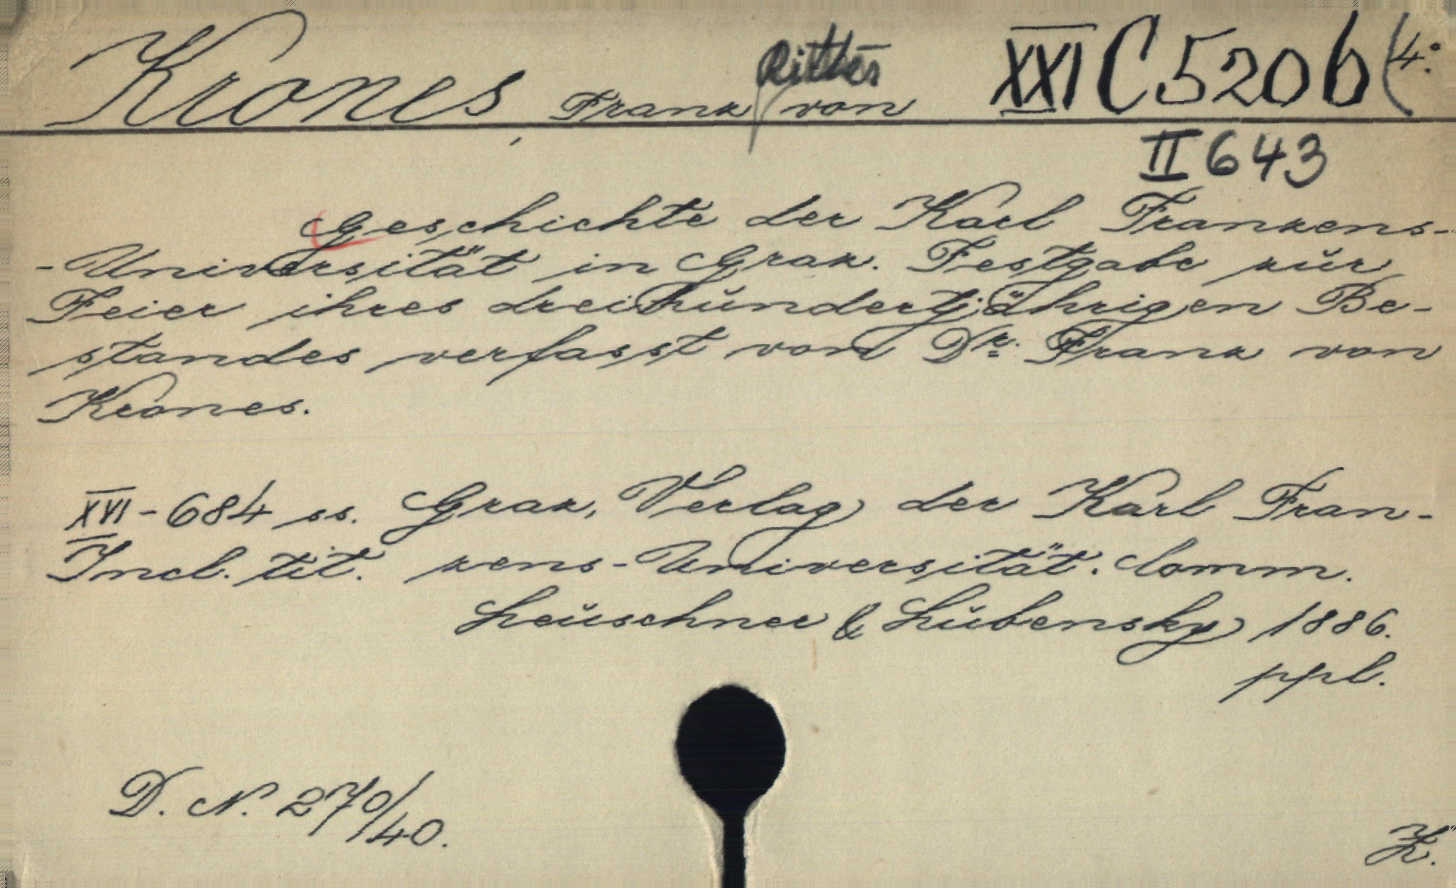 Krones, Franz Ritter von XXI C 520 b (4:
II 643
Geschichte der Karl Franzens-
-Universität in Graz. Festgabe zur
Feier ihres dreihundertjährigen Be-
standes verfasst von Dr. Franz von
Krones.
XVI-684 ss. Graz, Verlag der Karl Fran-
Incl. tit. zens-Universität. Comm.
Leuschner & Lubensky 1886.
ppl.
D. N. 270/40.
K.